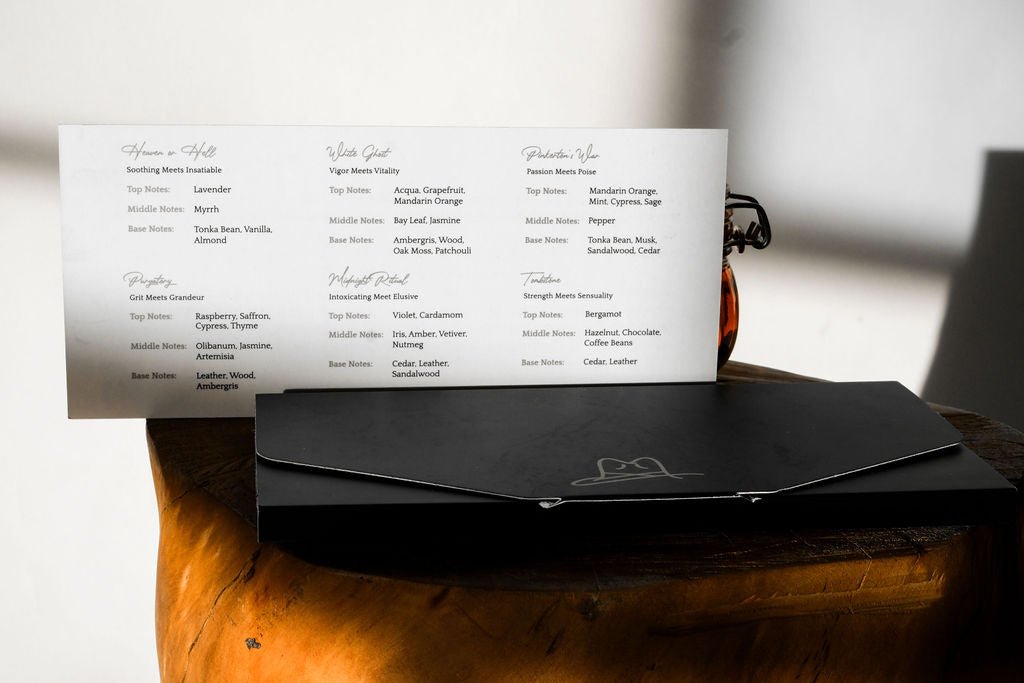 Heaven or Hell
Soothing Meets Insatiable
Top Notes: Lavender
Middle Notes: Myrrh
Base Notes: Tonka Bean, Vanilla,
Almond
White Ghost
Vigor Meets Vitality
Top Notes: Acqua, Grapefruit,
Mandarin Orange
Middle Notes: Bay Leaf, Jasmine
Base Notes: Ambergris, Wood,
Oak Moss, Patchouli
Pinkerton's War
Passion Meets Poise
Top Notes: Mandarin Orange,
Mint, Cypress, Sage
Middle Notes: Pepper
Base Notes: Tonka Bean, Musk,
Sandalwood, Cedar
Purgatory
Grit Meets Grandeur
Top Notes: Raspberry, Saffron,
Cypress, Thyme
Middle Notes: Olibanum, Jasmine,
Artemisia
Base Notes: Leather, Wood,
Ambergris
Midnight Ritual
Intoxicating Meet Elusive
Top Notes: Violet, Cardamom
Middle Notes: Iris, Amber, Vetiver,
Nutmeg
Base Notes: Cedar, Leather,
Sandalwood
Tombstone
Strength Meets Sensuality
Top Notes: Bergamot
Middle Notes: Hazelnut, Chocolate,
Coffee Beans
Base Notes: Cedar, Leather